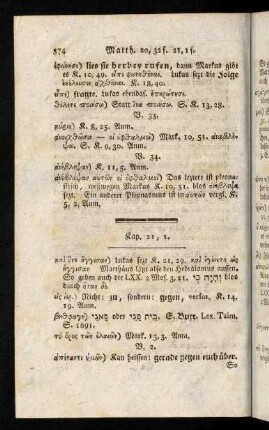 374 Matth. 20, 32 f. 21, 1 f.
ἐφώνησε) ließ sie herbey rufen, dann Markus gibt
es K. 10, 49. εἶπε φωνηθῆναι. Lukas sezt die Folge
K. 18, 40.
εἶπε) fragte. Lukas ebendas.
θέλετε ποιήσω) Statt ἵνα ποιήσω. S. K. 13, 28.
V. 33.
κύριε) K. 8, 25. Anm.
Mark. 10, 51.
S. K. 9, 30. Anm.
V. 34.
K. 11, 5. Anm.
αὐτῶν οἱ ὀφθαλμοί) Das leztere ist pleona-
stisch, deswegen Markus K. 10, 51. blos ἀνέβλεψε
sezt. Ein anderer Pleonasmus ist in αὐτῶν vergl. K.
5, 2. Anm.
Kap. 21, 1.
καὶ ὅτε ἤγγισαν) Lukas sezt K. 21, 29. καὶ ἐγένετο ὡς
ἤγγισεν. Matthäus läßt also den Hebraismus aussen.
So geben auch die LXX. 2 Mos. 3, 21. והיה כי blos
durch ὅταν δέ.
Nicht: zu, sondern: gegen, versus. K. 14,
19. Anm.
βηθφαγὴ) oder בית פגי. S. Buxt. Lex. Talm.
S. 1691.
τὸ ὄρος τῶν ἐλαιῶν) Mark. 13, 3. Anm.
V. 2.
ἀπέναντι ὑμῶν) Kan heissen: gerade gegen euch über.
So